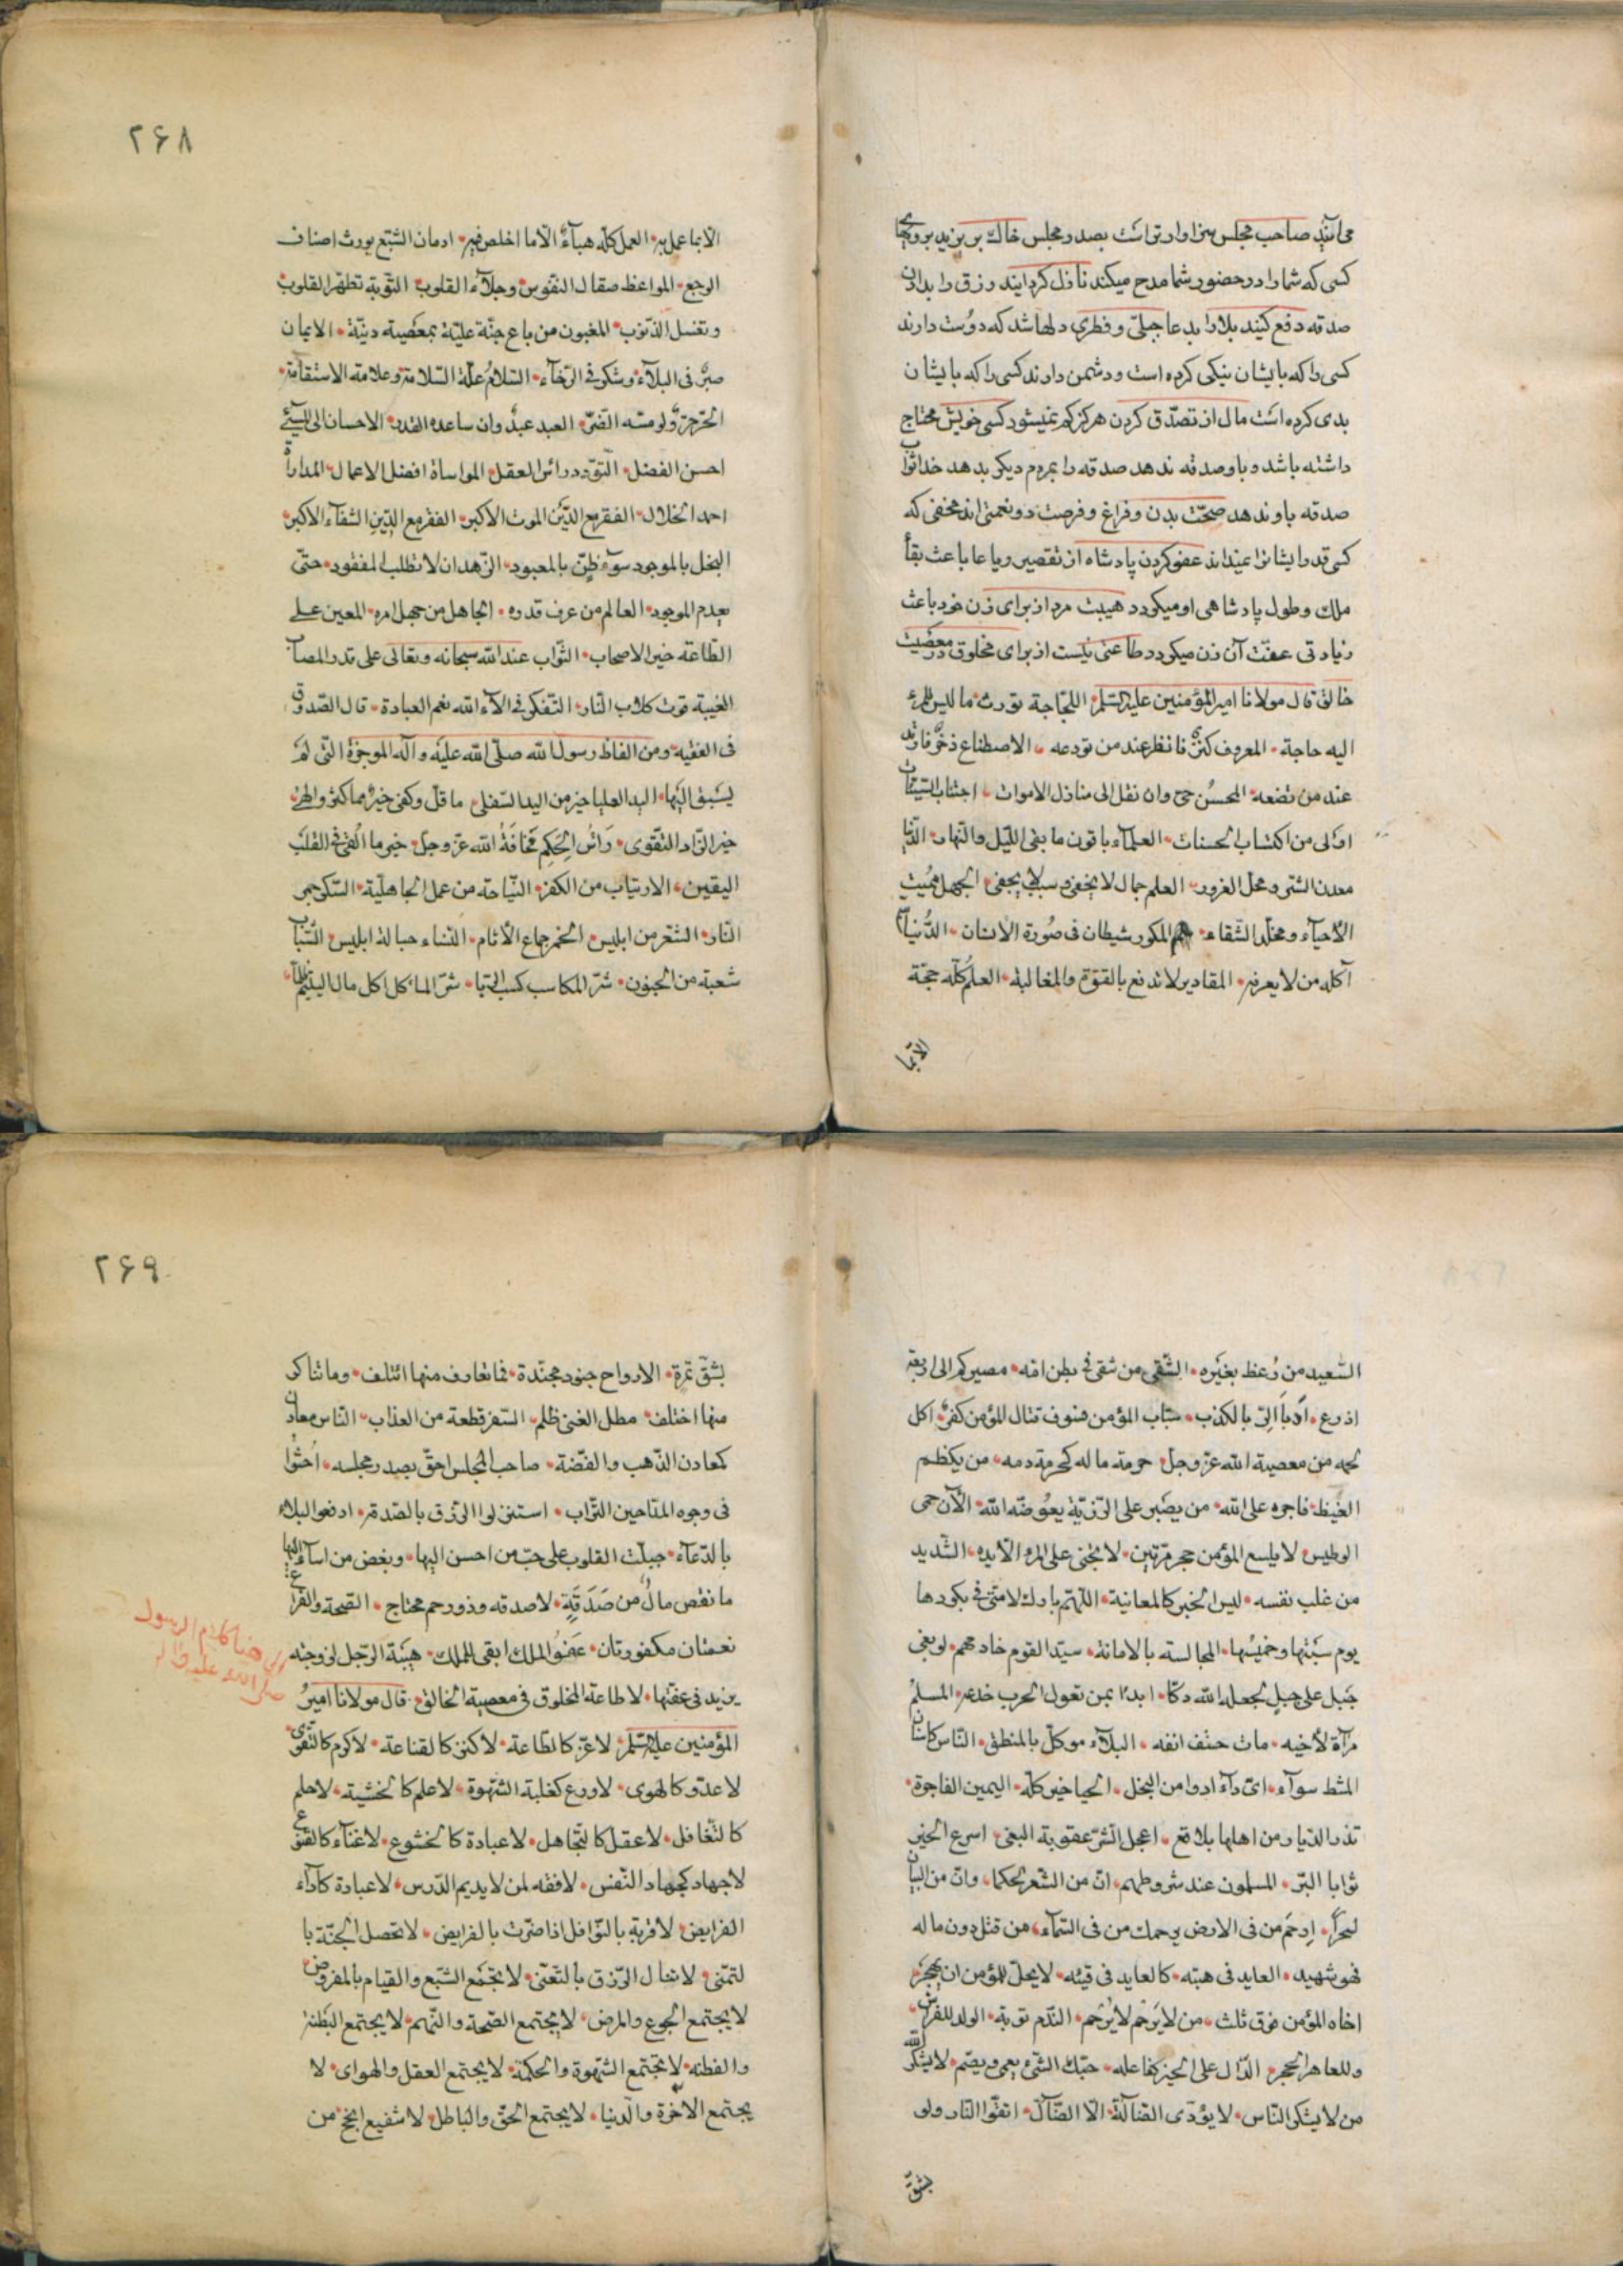 می‌آیند صاحب مجلس سزاوارتر است بصدر مجلس خاك بریزید بروی
کسی که شما را در حضور شما مدح میکند نازل گردانید رزق را بدادن
صدقه دفع کنید بلا را بدعا جبلّی و فطری دلها شد که دوست دارند
کسی را که بایشان نیکی کرده است و دشمن دارند کسی را که بایشان
بدی کرده است مال از تصدّق کردن هرگز کم نمیشود کسی خویش محتاج
داشته باشد و باو صدقه ندهد صدقه را بمردم دیگر بدهد خدا ثواب
صدقه باو ندهد صحّت بدن و فراغ و فرصت دو نعمتی‌اند مخفی که
کسی قدر ایشانرا نمیداند عفو کردن پادشاه از تقصیر رعایا باعث بقأ
ملك و طول پادشاهی او میگردد هیبت مرد از برای زن خود باعث
زیادتی عفّت آن زن میگردد طاعتی نیست از برای مخلوق در معصیت
خالق قال مولانا امیر المؤمنین علیه السّلم اللجاجة تورث ما لیس للمرء
الیه حاجة المعروف کنز فانظر عند من تودعه الاصطناع ذخر فارتد
عند من تضعه المحسن حیّ وان نقل الی منازل الاموات اجتناب السّیّئات
اولی من اکتساب الحسنات العلمآء باقون ما بقی اللّیل والنّهار الدّنیا
معدن الشّر و محل الغرور العلم جمال لا یخفی و نسیب لا یجفی الجهل ممیت
الأحیآء و مخلّد الشّقاء المکور شیطان فی صورة الانسان الدّنیا
أکله من لا یعرفه المقادیر لا تدفع بالقوّة والمغالبة العلم کلّه حجّة
الّا بما
۲۶۸
الّا بما عمل به العمل کلّه هبآء الّا ما اخلص فیه ادمان الشّبع یورث اصناف
الوجع المواعظ صقال النّفوس و جلآء القلوب التّوبة تطهّر القلوب
و تغسل الذّنوب المغبون من باع جنّة علیّة بمعصیة دنیّة الایمان
صبر فی البلآء و شکر فی الرّخآء السّلام علّة السّلامة و علامة الاستقامة
الحرّ حرّ و لو مسّه الضّرّ العبد عبد وان ساعده القدر الاحسان الی المسیئ
احسن الفضل التّودّد رأس العقل المواساة افضل الاعمال المداراة
احمد الخلال الفقر مع الدّین الموت الاکبر الفقر مع الدّین الشّقآء الاکبر
البخل بالموجود سوء ظنّ بالمعبود الزّهد ان لا تطلب المفقود حتّی
یعدم الموجود العالم من عرف قدره الجاهل من جهل امره المعین علی
الطّاعة خیر الاصحاب الثّواب عند الله سبحانه و تعالی علی قدر المصاب
الغیبة قوت کلاب النّار التّفکّر فی الآء الله نعم العبادة قال الصّدوق
فی الفقیه و من الفاظ رسول الله صلّی الله علیه و آله الموجزة الّتی لم
یسبق الیها الید العلیا خیر من الید السّفلی ما قلّ وکفی خیر مما کثر والهی
خیر الزّاد التّقوی رأس الحکم مخافة الله عزّ و جلّ خیر ما القی فی القلب
الیقین الارتیاب من الکفر النّیاحة من عمل الجاهلیّة السّکر جمر
النّار الشّعر من ابلیس الخمر جماع الأثام النّساء حبالة ابلیس الشّباب
شعبة من الجنون شرّ المکاسب کسب الرّبا شرّ المآکل اکل مال الیتیم ظلماً
السّعید من وعظ بغیره الشّقی من شقی فی بطن امّه مصیرکم الی اربعة
اذرع اربا الرّبا الکذب سباب المؤمن فسوق قتال المؤمن کفر اکل
لحمه من معصیة الله عزّ و جلّ حرمة ماله کحرمة دمه من یکظم
الغیظ فاجره علی الله من یصبر علی الرّزیّة یعوّضه الله الآن حمی
الوطیس لا یلسع المؤمن حجر مرّتین لا یجنی علی المرء الّا یده الشّدید
من غلب نفسه لیس الخبر کالمعاینة اللّهم بارك لامّتی فی بکورها
یوم سبتها و خمیسها المجالسة بالامانة سیّد القوم خادمهم لو بغی
جبل علی جبل لجعله الله دکّا ابدأ بمن تعول الحرب خدعة المسلم
مرآة لأخیه مات حتف انفه البلآء موکّل بالمنطق النّاس کاسنان
المشط سوآء ایّ دآء ادوا من البخل الحیا خیر کلّه الیمین الفاجرة
تذر الدّیار من اهلها بلاقع اعجل الشّرّ عقوبة البغی اسرع الخیر
ثوابا البرّ المسلمون عند شروطهم انّ من الشّعر لحکما وانّ من البیان
لسحراً ارحم من فی الارض یرحمك من فی السّمآء من قتل دون ماله
فهو شهید العاید فی هبته کالعاید فی قیئه لا یحلّ للمؤمن ان یهجر
اخاه المؤمن فوق ثلث من لا یرحم لا یرحم النّدم توبة الولد للفراش
وللعاهر الحجر الدّال علی الخیر کفاعله حبّك الشّئ یعمی و یصم لا یشکر الله
من لا یشکر النّاس لا یؤدّی الضّالّة الّا الضّالّ اتقوا النّار ولو
بشقّ
۲۶۹
بشقّ تمرة الارواح جنود مجنّدة فما تعارف منها ائتلف و ما تناکر
منها اختلف مطل الغنی ظلم السّفر قطعة من العذاب النّاس معادن
کمعادن الذّهب والفضّة صاحب المجلس احقّ بصدر مجلسه احثوا
فی وجوه المدّاحین التّراب استنزلوا الرّزق بالصّدقة ادفعوا البلاء
بالدّعآء جبلت القلوب علی حبّ من احسن الیها و بغض من اسآء الیها
ما نقص مال من صدقة لا صدقة و ذو رحم محتاج الصّحة والفراغ
نعمتان مکفورتان عفو الملك ابقی للملك هیبة الرّجل لزوجته
یزید فی عفّتها لا طاعة لمخلوق فی معصیة الخالق قال مولانا امیر
المؤمنین علیه السّلم لا عزّ کالطّاعة لا کنز کالقناعة لا کرم کالتّقوی
لا عدّو کالهوی لا ورع کغلبة الشّهوة لا علم کالخشیة لا حلم
کالتّغافل لا عقل کالتّجاهل لا عبادة کالخشوع لا غنآء کالقنوع
لا جهاد کجهاد النّفس لا فقه لمن لا یدیم الدّرس لا عبادة کأدآء
الفرایض لا قربة بالنّوافل اذا ضرّت بالفرایض لا تحصل الجنّة با
لتمنّی لا تنال الرّزق بالتّعنّی لا یجتمع الشّبع والقیام بالمفروض
لا یجتمع الجوع والمرض لا یجتمع الصّحة والنّهم لا یجتمع البطنة
والفطنه لا تجتمع الشّهوة والحکمة لا یجتمع العقل والهوای لا
یجتمع الآخرة والدنیا لا یجتمع الحقّ والباطل لا شفیع انجح من
الی هنا کلام الرسول
صلی الله علیه و آله